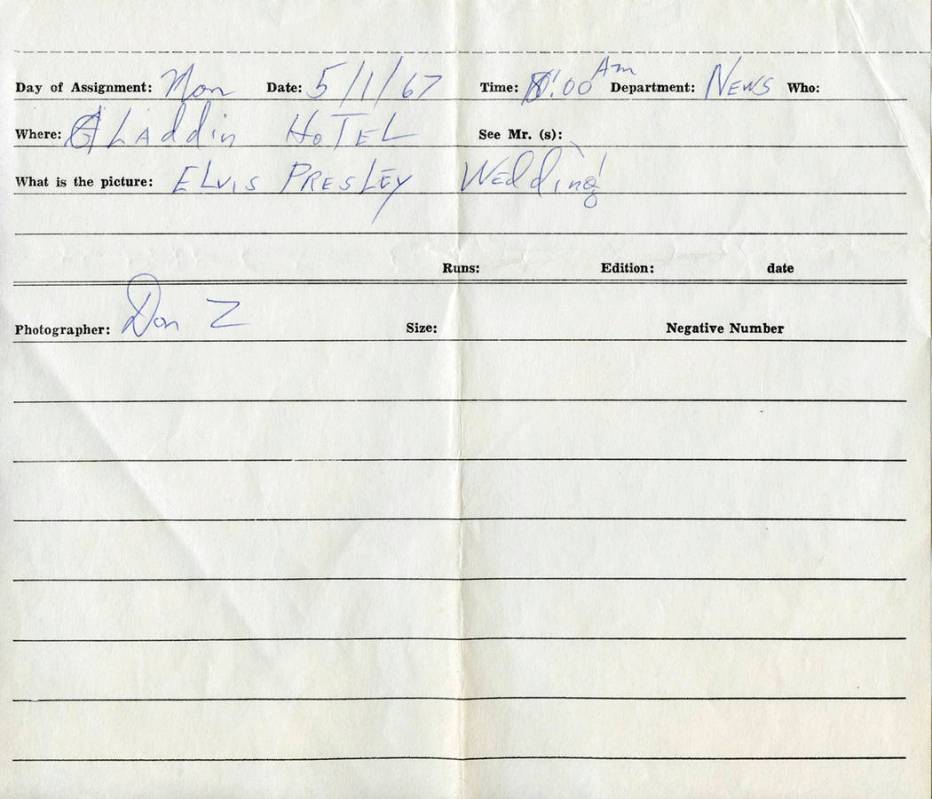 Day of Assignment: Mon Date: 5/1/67 Time: 8:00 Am Department: News Who:
Where: ALaddin HoTEL See Mr. (s):
What is the picture: ELvis PresLEy Wedding
Runs: Edition: date
Photographer: Don Z Size: Negative Number